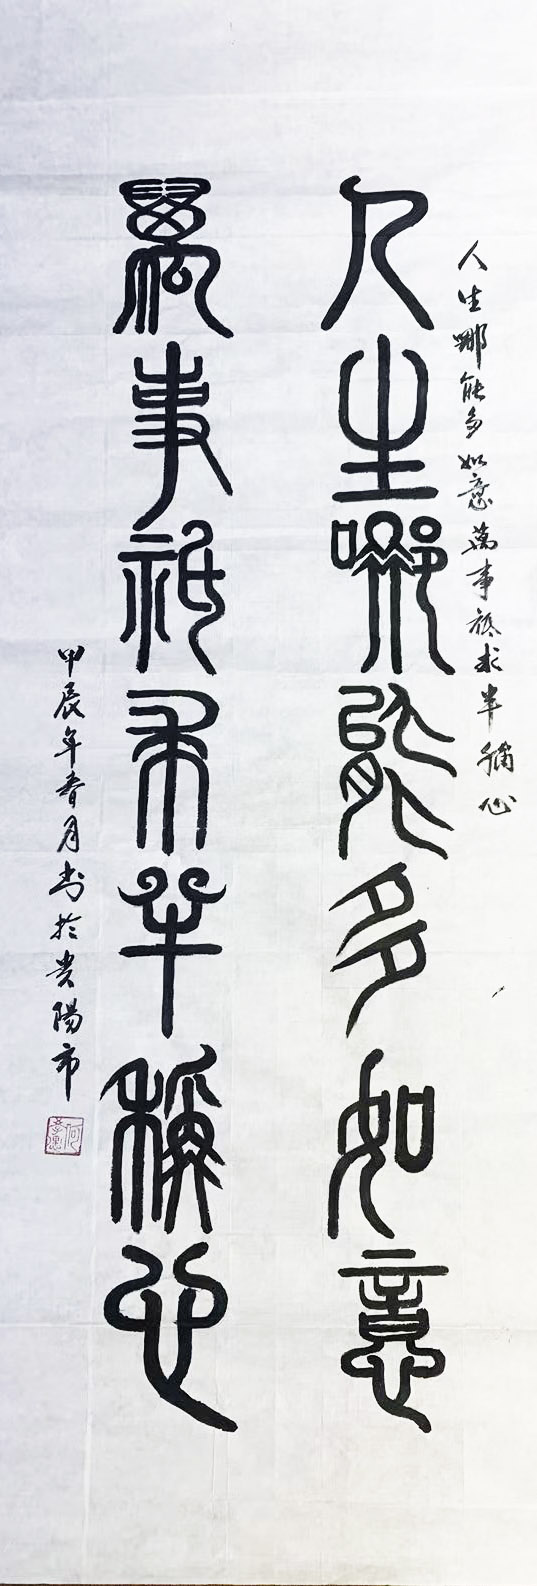 人生哪能多如意萬事祗求半稱心
人生哪能多如意
萬事祗求半稱心
甲辰年春月书於贵陽市